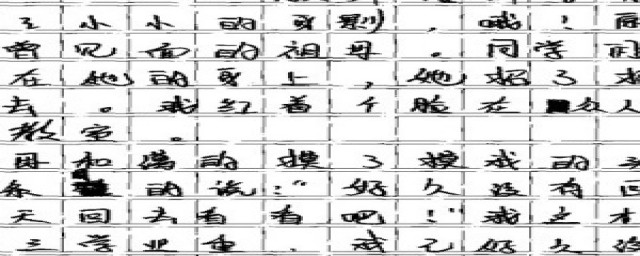 小小的，哦！
曾见面的祖母。同学
在他的身上，他招了招
去。我红着个脸在众人
教室。
母和蔼的摸了摸我的
的说：“好久没有回
天回去看看吧！”我
三学业重，我已好久没